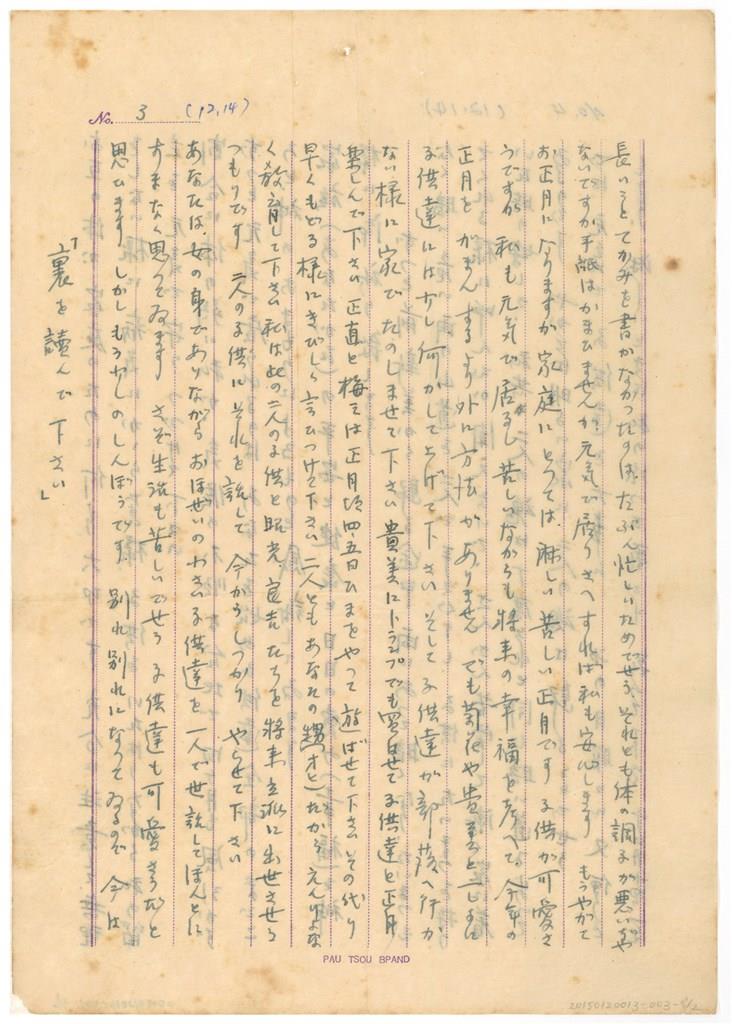 No. 3 (12,14)
長いことてがみを書かなかつたのは、たぶん忙しいためでせう、それとも体の調子が悪いぢや
ないですか、手紙はかまひませんが元気で居りさへすれば私も安心します もうやがて
お正月になりますが家庭にとつては、淋しい苦しい正月です 子供が可愛さ
うですが 私も元気で居るし 苦しいながらも将来の幸福を考へて、今年の
正月をがまんするより外に方法がありません でも菊花や貴美と一しよに
子供達には少し何かして上げて下さい そして子供達が部落へ行か
ない様に家でたのしませて下さい 貴美にトランプでも買はせて子供達と正月
楽しんで下さい 正直と梅子は正月頃四、五日ひまをやつて遊ばせて下さい その代り
早くもどる様にきびしく言ひつけて下さい 二人ともあなたの甥(オヒ)だから えんりよな
く教育して下さい 私は此の二人の子供と昭光、良吉たちを将来立派に出世させる
つもりです 二人の子供にそれを説して 今からしつかり やらせて下さい
あなたは、女の身でありながらおほぜいのわさい子供達を一人で世話してほんとに
すまなく思つてゐます さぞ生活も苦しいでせう 子供達も可愛さうだと
思ひます しかしもう少しのしんぼうです、別れ別れになつてゐるので 今は
「裏を讀んで下さい」
PAU TSOU BPAND
20150120013-003-